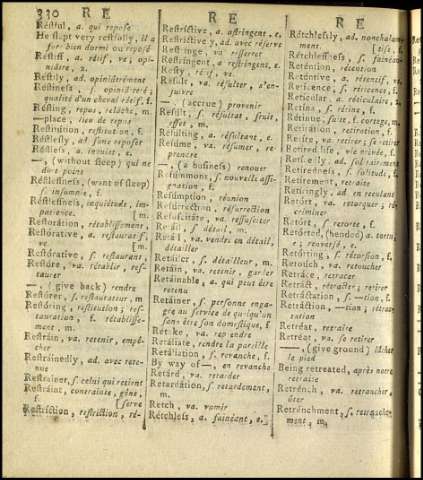 330 RE RE RE
Réstful, a. qui repose
He slept very restfully, il a
fort bien dormi ou reposé
Restiff, a. rétif, ve, opi-
niâtre, 2.
Restily, ad. opiniâtrément
Restiness, s. opiniâtreté;
qualité d'un cheval rétif, f.
Résting, repos, relâche, m.
—place, lieu de repos
Restitution, restitution, f.
Réstlesly, ad. sans reposer
Réstless, a. inquiet, e.
—, (without sleep) qui ne
dort point
Réstlessness, (want of sleep)
s. insomnie, f.
Réstlessness, inquiétude, im-
patience. [m.
Restoration, rétablissement,
Restórative, a. restauratif,
ve [m.
Restórative, s. restaurant,
Restóre, va. rétablir, res-
taurer
—, (give back) rendre
Restórer, s. restaurateur, m
Restóring, restitution; res-
tauration, f. rétablisse-
ment, m.
Restráin, va. retenir, empê-
cher
Restráinedly, ad. avec rete-
nue
Restráiner, s. celui qui retient
Restráint, contrainte, gêne,
f. [serre
Restríction, restriction, ré-
Restríctive, a. astringent, e.
Restríctively, ad. avec réserve
Restringe, va. resserrer
Restringent, a. restringent, e.
Resty, rétif, ve.
Resúlt, va. résulter, s'en-
suivre
—, (accrue) provenir
Resúlt, s. résultat, fruit,
effet, m.
Resúlting, a. résultant, e.
Resúme, va. résumer, re-
prendre
—, (a business) renouer
Resúmmons, s. nouvelle assi-
gnation, f.
Resúmption, réunion
Resurréction, résurrection
Resúscitate, va. ressusciter
Retáil, s. détail, m.
Retáil, va. vendre en détail,
détailler
Retáiler, s. détailleur, m.
Retáin, va. retenir, garder
Retáinable, a. qui peut être
retenu
Retáiner, s. personne enga-
gée au service de quelqu'un
sans être son domestique, f.
Retáke, va. reprendre
Retáliate, rendre la pareille
Retaliátion, s. revanche, f.
By way of —, en revanche
Retárd, va. retarder
Retardátion, s. retardement,
m.
Retch, va. vomir
Rétchless, a. fainéant, e.
Rétchlessly, ad. nonchalam-
ment. [tise, f.
Rétchlessness, s. fainéan-
Reténtion, rétention
Reténtive, a. rétentif, ve.
Réticence, s. réticence, f.
Retícular, a. réticulaire, 2.
Rétina, s. rétine, f.
Rétinue, suite, f. cortege, m.
Retirátion, retiration, f.
Retíre, va. retirer; se retirer
Retíred life, vie privée, f.
Retíredly, ad. solitairement
Retíredness, s. solitude, f.
Retírement, retraite
Retíringly, ad. en reculant
Retórt, va. rétorquer; ré-
criminer
Retórt, s. retorte, f.
Retórted, (bended) a. tortu,
e; renversé, e.
Retórting, s. rétorsion, f.
Retóuch, va. retoucher
Retráce, retracer
Retráct, rétracter; retirer
Retractátion, s. —tion, f.
Retráction, —tion; rétrac-
tation
Retréat, retraite
Retréat, va. se retirer
—, (give ground) lâcher
le pied
Being retreated, après notre
retraite
Retrénch, va. retrancher,
ôter
Retrénchment, s. retranche-
ment, m.